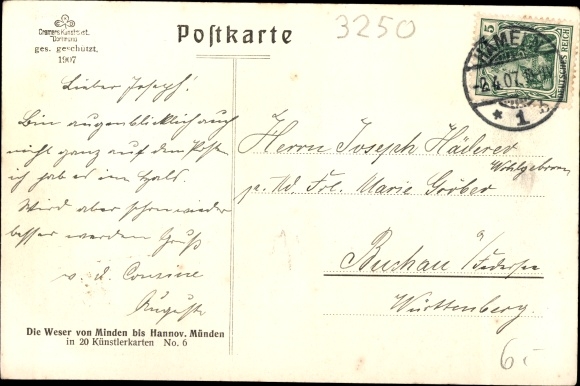 Cramers Kunstanst.
Dortmund
ges. geschützt.
1907
Postkarte
3250
5
DEUTSCHES REICH
HAMEL
2.4.07.
* 1 b
Lieber Joseph!
Bin augenblicklich auch
nicht ganz auf dem Posten
ich hab es im Hals.
Wird aber schon wieder
besser werden Gruß
v. d. Cousine
Auguste
Herrn Joseph Häderer
Wohlgeboren
p. Ad Frl. Marie Gröber
Buchau a/Federsee
Württenberg.
Die Weser von Minden bis Hannov. Münden
in 20 Künstlerkarten No. 6
6.-